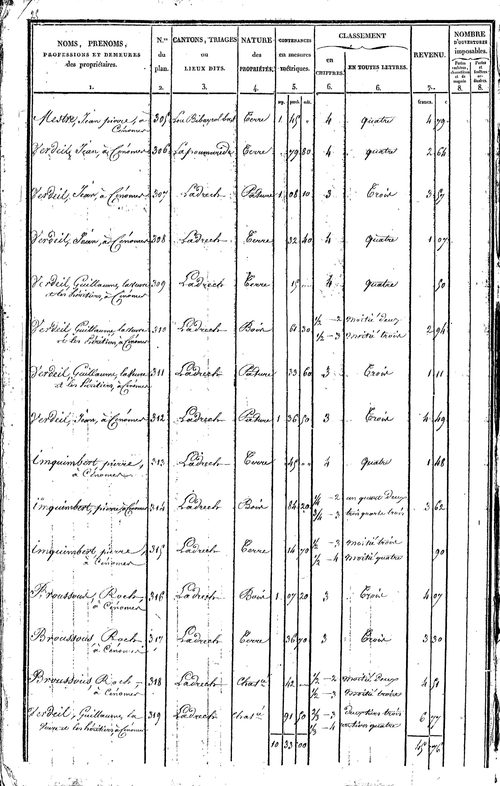 NOMS, PRENOMS,
PROFESSIONS ET DEMEURES
des propriétaires.
1.
N.os
du
plan.
2.
CANTONS, TRIAGES
ou
LIEUX DITS.
3.
NATURE
des
PROPRIÉTÉS.
4.
CONTENANCES
en mesures
métriques.
5.
CLASSEMENT
en
CHIFFRES.
6.
EN TOUTES LETTRES.
6.
REVENU.
7.
NOMBRE
D'OUVERTURES
imposables.
8. 8.
arp. perch. mèt. francs. c
Mestre, Jean pierre, à 305 Terre 1 45 4 quatre 4 79
Cénomer
Verdeil, Jean, à Cénomer 306 Terre 79 80 4 quatre 2 64
Verdeil, Jean, à Cénomer 307 Ladrech Pature 1 08 10 3 Trois 3 57
Verdeil, Jean, à Cénomer 308 Ladrech Terre 32 40 4 quatre 1 07
Verdeil, Guillaume, la veuve 309 Ladrech Terre 15 4 quatre 50
et les héritiers, à Cénomer
Verdeil Guillaume, la veuve 310 Ladrech Bois 61 30 1/2 - 2 moitié deux 2 94
et les héritiers, à Cénomer 1/2 - 3 moitié trois
Verdeil, Guillaume, la veuve 311 Ladrech Pature 33 60 3 Trois 1 11
et les héritiers, à Cénomer
Verdeil, Jean, à Cénomer 312 Ladrech Pature 1 36 50 3 Trois 4 49
Imquimbert pierre, 313 Ladrech Terre 45 4 Quatre 1 48
à Cénomer
Imquimbert, pierre, à Cénomer 314 Ladrech Bois 84 20 1/4 - 2 un quart deux 3 62
3/4 - 3 trois quarts trois
Imquimbert pierre, 315 Ladrech Terre 14 70 1/2 - 3 moitié trois 90
à Cénomer 1/2 - 4 moitié quatre
Broussous, Roch, 316 Ladrech Bois 1 07 20 3 Trois 4 07
à Cénomer
Broussous Roch 317 Ladrech Terre 36 70 3 Trois 3 30
à Cénomer
Broussous Roch 318 Ladrech 42 1/2 - 2 moitié Deux 4 51
à Cénomer 1/2 - 3 moitié trois
Verdeil, Guillaume, la 319 Ladrech 91 50 2/3 - 3 deux tiers trois 6 77
veuve et les héritiers, à Cénomer 1/3 - 4 un tiers quatre
10 33 00 45 76